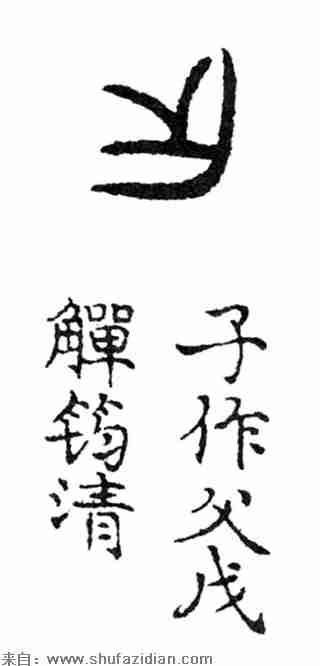 子作父戊
觶筠清
来自：www.shufazidian.com